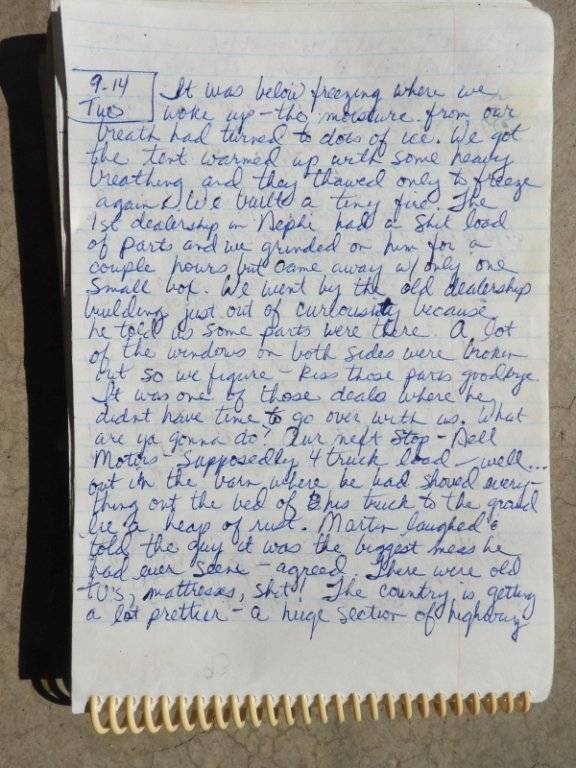 9-14 It was below freezing where we
Tues woke up - the moisture from our
breath had turned to dots of ice. We got
the tent warmed up with some heavy
breathing and they thawed only to freeze
again & We built a tiny fire. The
1st dealership in Nephi had a shit load
of parts and we grinded on him for a
couple hours but came away w/ only one
small box. We went by the old dealership
building just out of curiousity because
he told us some parts were there. A lot
of the windows on both sides were broken
out so we figure - kiss those parts goodbye.
It was one of those deals where he
didnt have time to go over with us. What
are ya gonna do? Our next stop - Dell
Motors - Supposedly 4 truck load - well...
out in the barn where he had shoved every-
thing out the bed of his truck to the ground
lie a heap of rust. Martin laughed &
told the guy it was the biggest mess he
had ever scene - agreed. There were old
TU's, mattresses, shit! The country is getting
a lot prettier - a huge section of highway